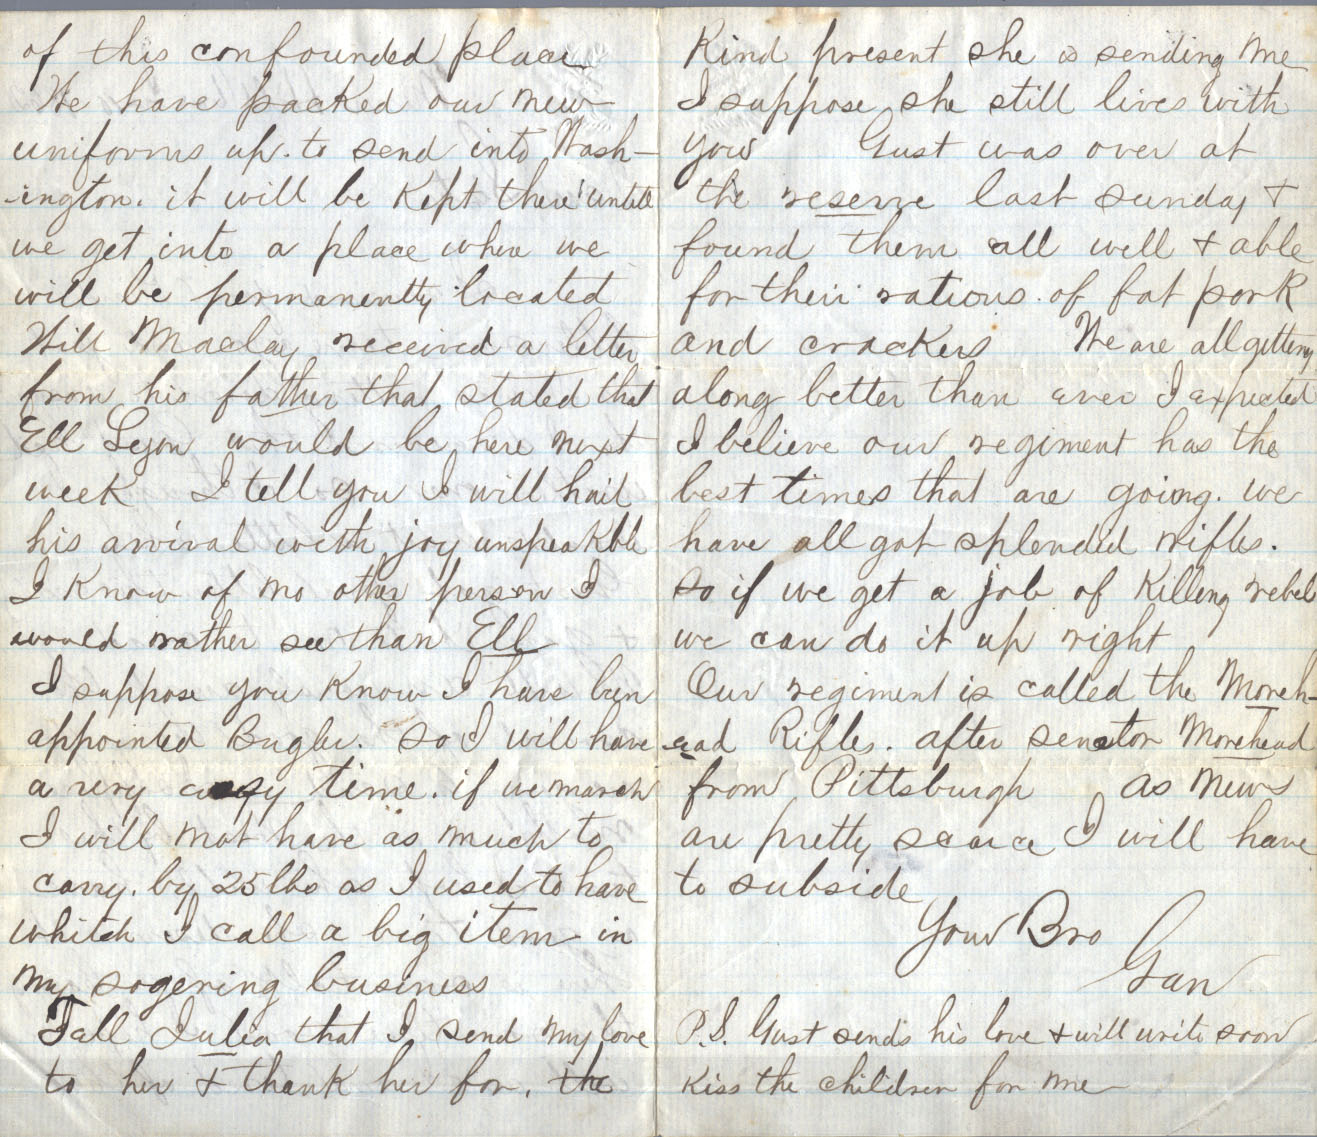 of this confounded place
We have packed our new
uniforms up. to send into Wash-
-ington. it will be Kept there untill
we get into a place where we
will be permanently located
Will Maclay received a letter
from his father that stated that
Ell Lyon would be here next
week I tell you I will hail
his arrival with joy unspeakble
I Know of no other person I
would rather see than Ell
I suppose you Know I have bun
appointed Bugler. so I will have
a very easy time. if we march
I will not have as much to
carry. by 25 lbs as I used to have
whitch I call a big item in
my sogering business
Tall Julia that I send my love
to her & thank her for, the
Kind present she is sending me
I suppose she still lives with
you Gust was over at
the reserve last sunday &
found them all well & able
for their rations of fat pork
and crackers We are all getting
along better than ever I expected
I believe our regiment has the
best times that are going. we
have all got splended rifles.
so if we get a job of Killing rebel
we can do it up right
Our regiment is called the Moreh-
-ead Rifles. after senator Morehead
from Pittsburgh as news
are pretty scarce I will have
to subside
Your Bro
Gan
P.S. Gust sends his love & will write soon
Kiss the children for me